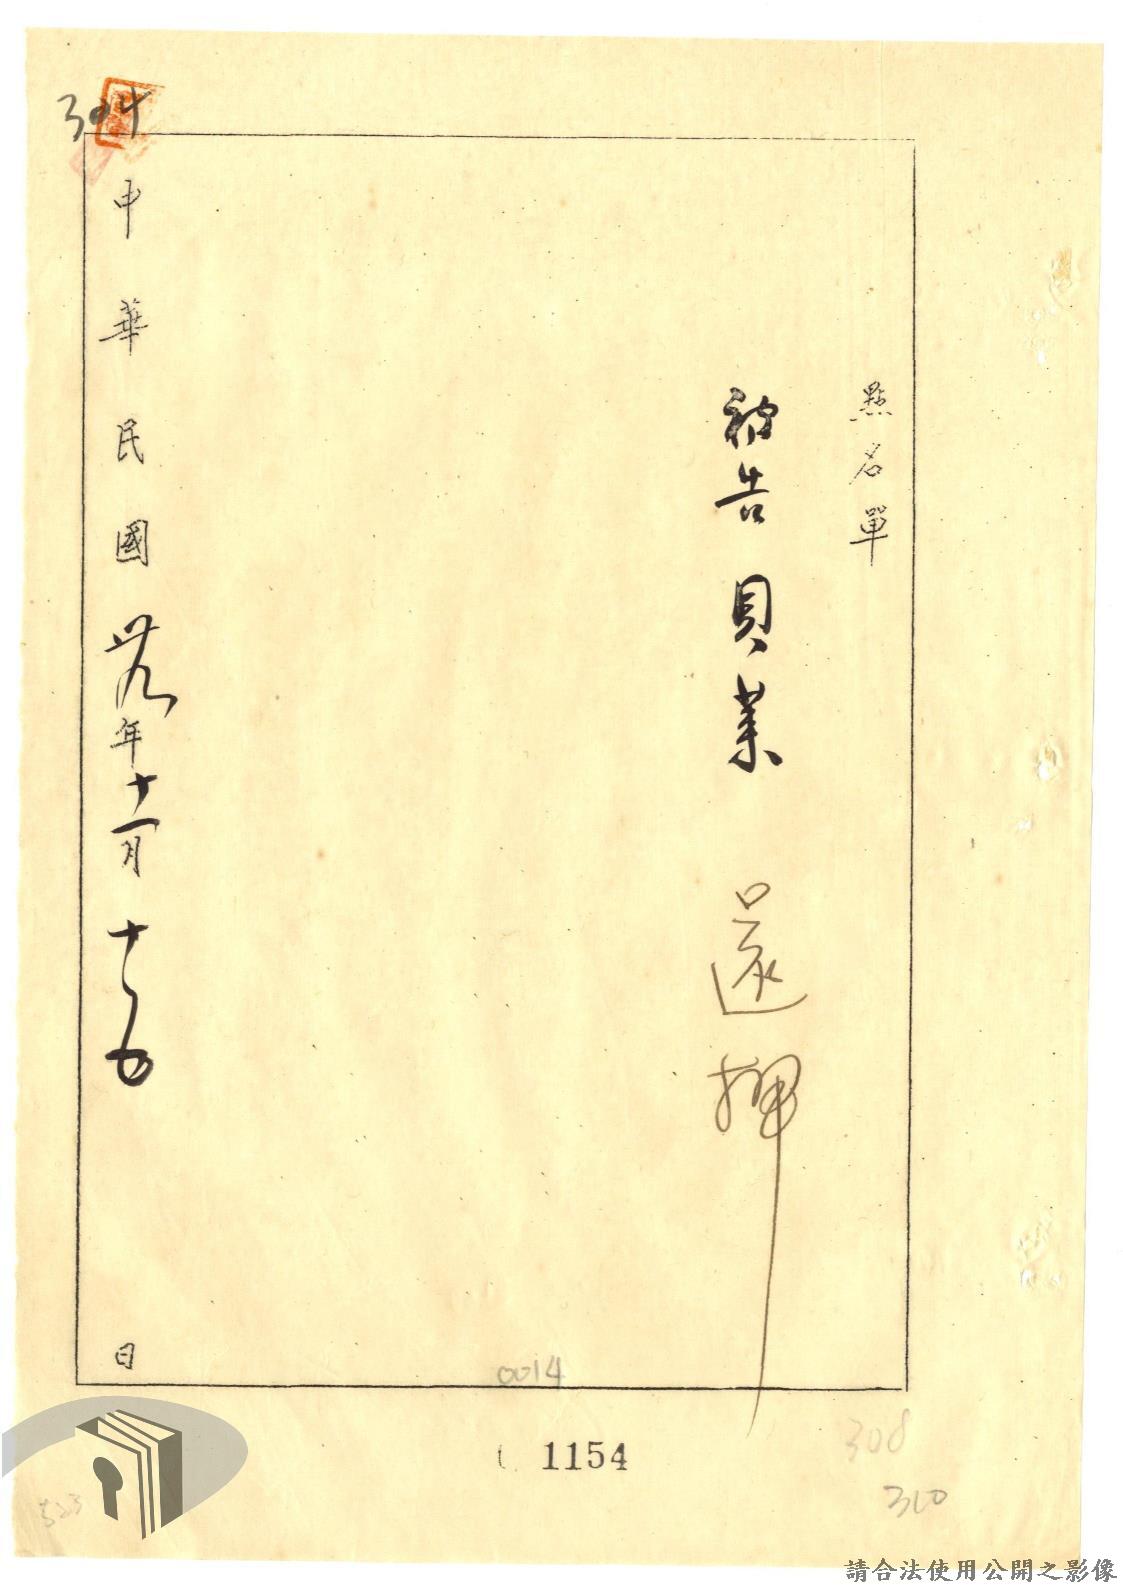 點名單
被告 貝萊 還押
中華民國卅九年十一月十五日
304
0014
1154
308
310
523
請合法使用公開之影像